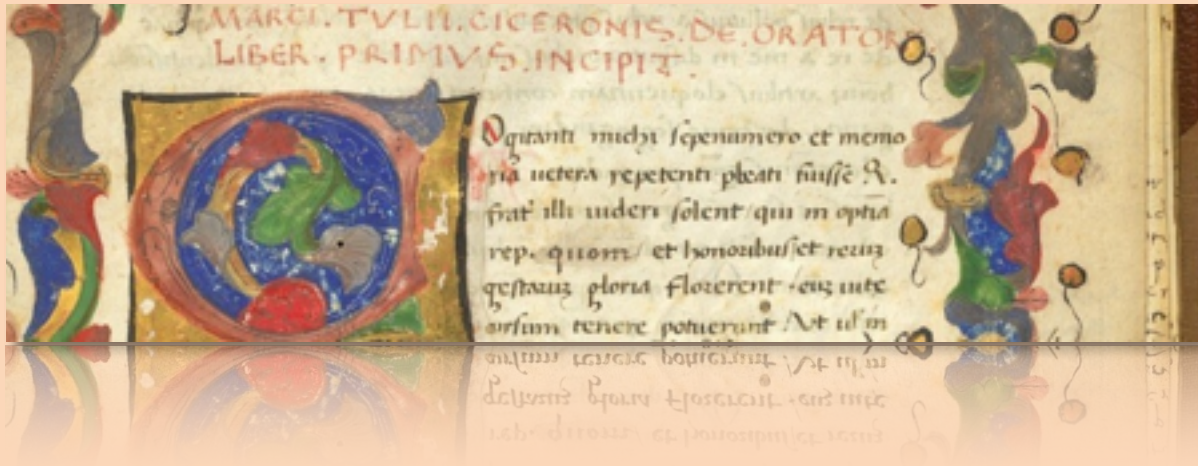 MARCI . TVLII . CICERONIS . DE . ORATOR
LIBER . PRIMVS . INCIPIT .
Ogitanti michi sepenumero et memo
ria uetera repetenti pbeati fuisse R.
frat' illi uideri solent / qui in optīa
rep. quom / et honoribus / et reruʒ
gestaruʒ gloria florerent . euʒ uite
cursum tenere potuerunt / Vt ul' in